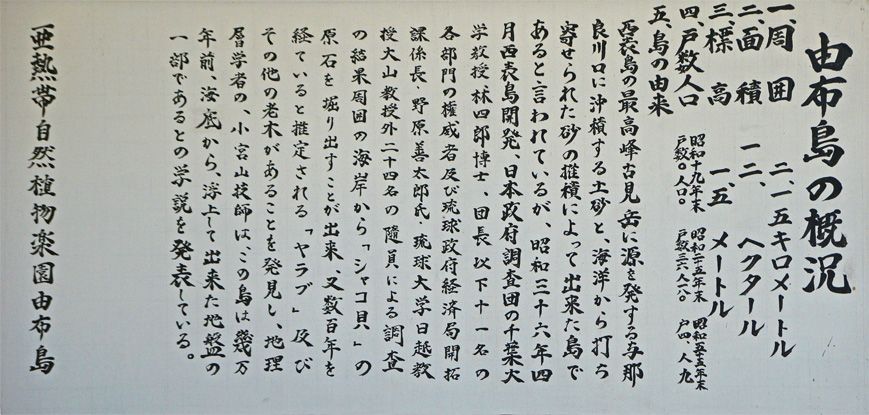 由布島の概況
一、周囲 二、一五キロメートル
二、面積 一二、ヘクタール
三、標高 一、五メートル
四、戸数人口 昭和十九年末 戸数〇人口〇 昭和二十五年末 戸数三六人 昭和五十五年末 戸四、人九
五、島の由来
西表島の最高峰古見岳に源を発する与那
良川口に沖積する土砂と、海洋から打ち
寄せられた砂の推積によって出来た島で
あると言われているが、昭和三十六年四
月西表島開発、日本政府調査団の千葉大
学教授林四郎博士、団長以下十一名の
各部門の権威者及び琉球政府経済局開拓
課係長・野原善太郎氏・琉球大学日越教
授大山教授外二十四名の随員による調査
の結果周囲の海岸から「シャコ貝」の
原石を掘り出すことが出来、又数百年を
経ていると推定される「ヤラブ」及び
その他の老木があることを発見し、地理
層学者の、小宮山技師は、この島は幾万
年前、海底から、浮上して出来た地盤の
一部であるとの学説を発表している。
亜熱帯自然植物楽園由布島